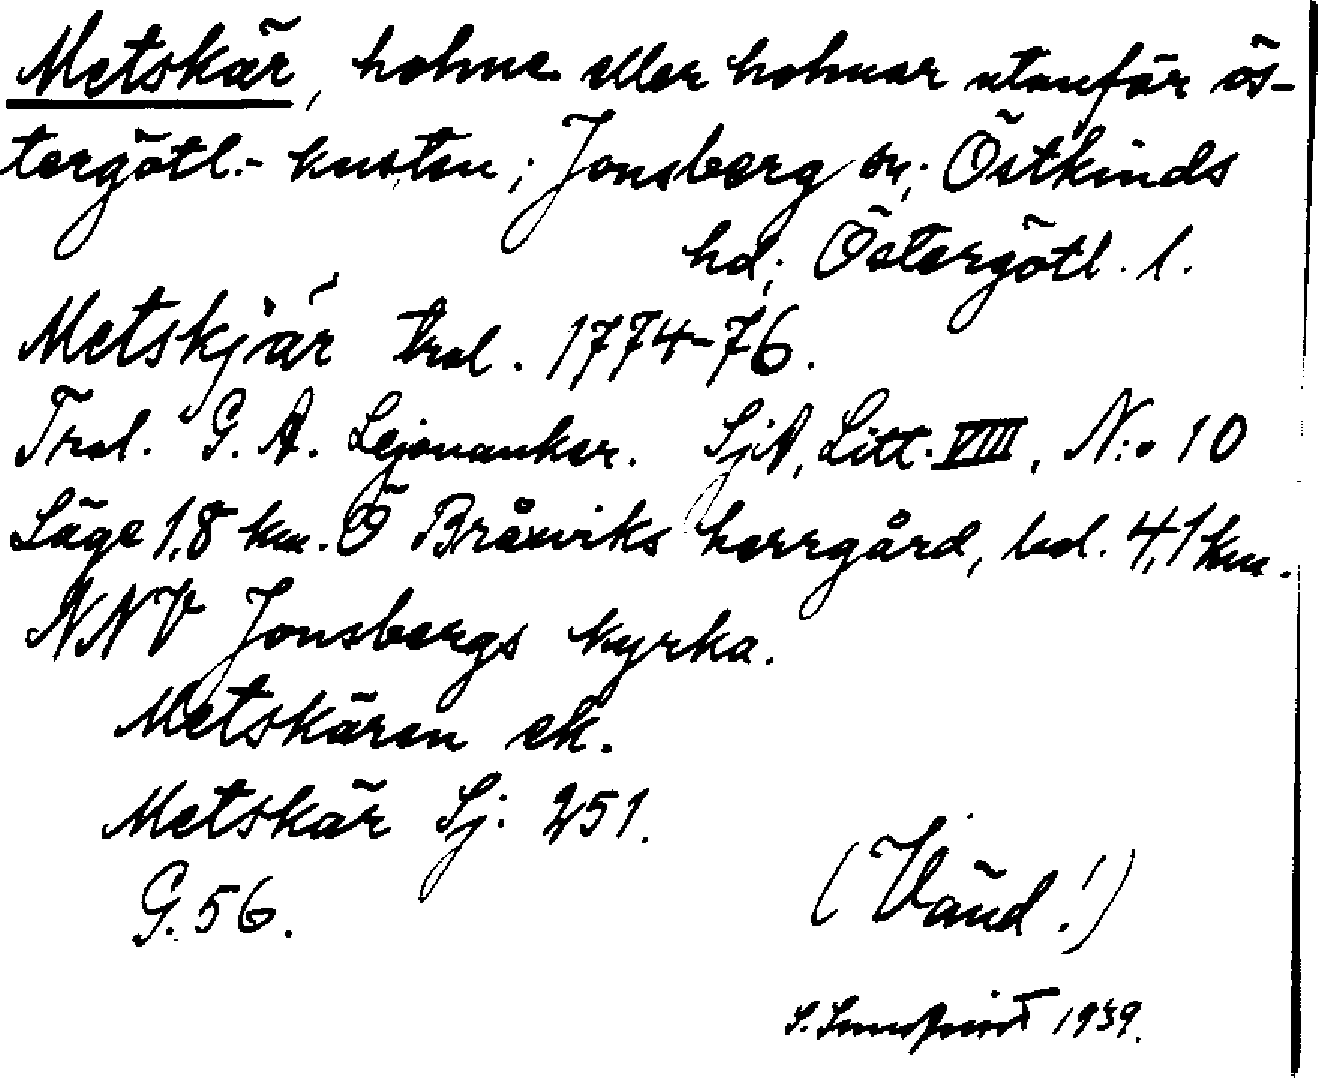 Metskär, holme eller holmar utanför ös-
tergötl.- kusten; Jonsberg sn; Östkinds
hd; Östergötl. l.
Metskjär trol. 1774-76.
Trol. G. A. Lejonanker. SjA, Litt. VIII, N:o 10
Läge 1,8 km. Ö Bråxviks herrgård, bel. 4,1 km.
NNV Jonsbergs kyrka.
Metskären ek.
Metskär Sj: 251.
G. 56.
(Vänd!)
S. 1939.